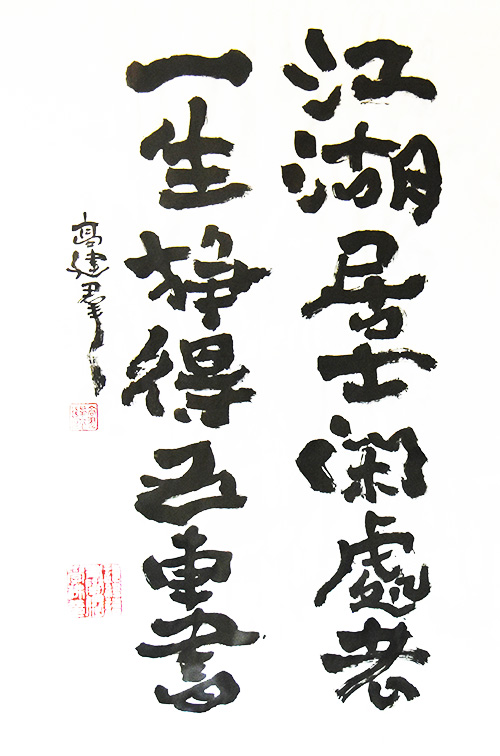 江湖居士閑處老
一生挣得五車書
高建群